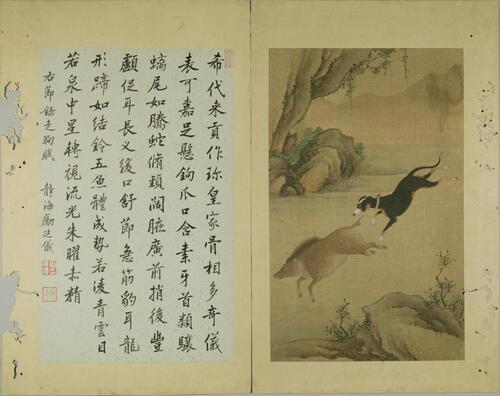 希代来貢作珎皇家骨相多奇儀
表可嘉足懸鉤爪口含素牙首類驤
螭尾如騰蛇脩頸闊腋廣前捎後豐
顱促耳長叉緩口舒節急筋豹耳龍
形蹄如結鈴五魚體成勢若凌青雲目
若泉中星轉視流光朱曜赤精
右節錄走狗賦 静海勵廷儀